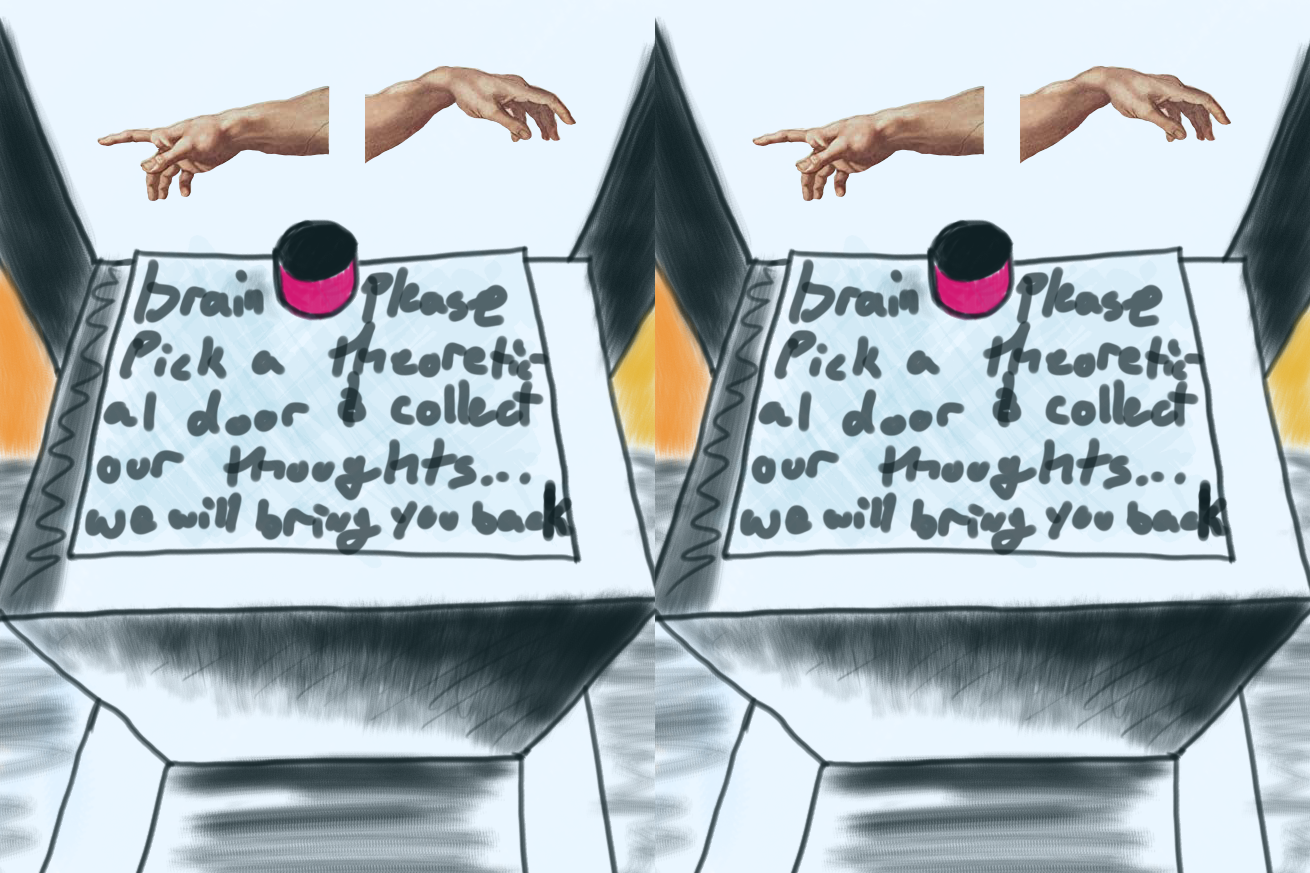 brain Please
Pick a theoretic-
al door & collect
our thoughts...
we will bring you back
brain Please
Pick a theoretic-
al door & collect
our thoughts...
we will bring you back